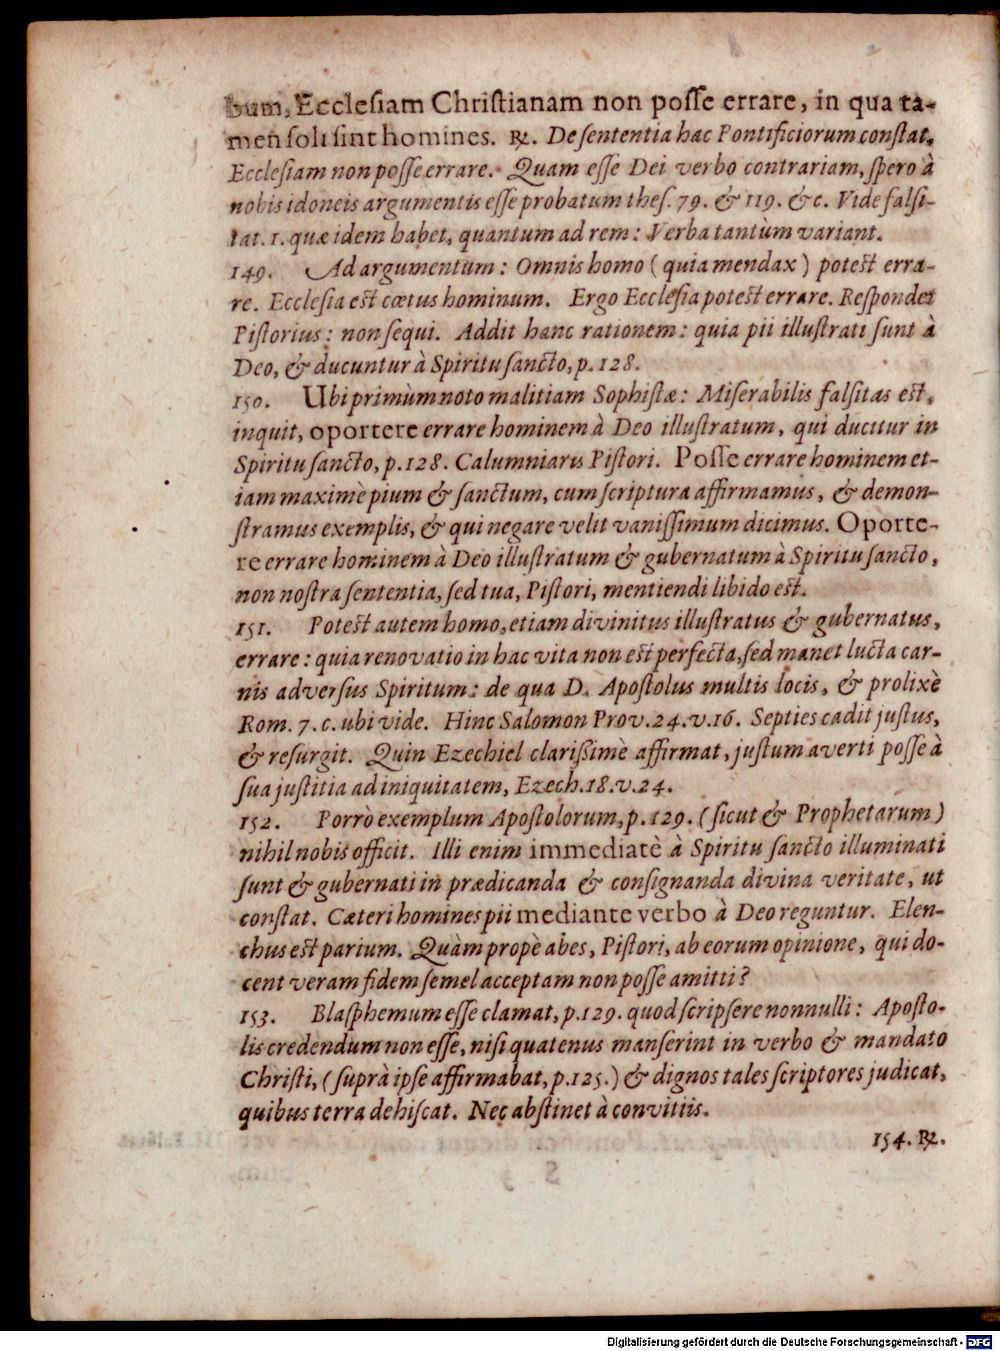 bum, Eccleſiam Chriſtianam non poſſe errare, in qua ta-
men ſoli ſint homines. ℞. De ſententia hac Pontificiorum conſtat,
Eccleſiam non poſſe errare. Quam eſſe Dei verbo contrariam, ſpero à
nobis idoneis argumentis eſſe probatum theſ. 79. & 119. &c. Vide falſi-
tat. 1. quæ idem habet, quantum ad rem: Verba tantùm variant.
149. Ad argumentum: Omnis homo (quia mendax) poteſt erra-
re. Eccleſia eſt cœtus hominum. Ergo Eccleſia poteſt errare. Reſpondet
Piſtorius: non ſequi. Addit hanc rationem: quia pii illuſtrati ſunt à
Deo, & ducuntur à Spiritu ſancto, p. 128.
150. Ubi primùm noto malitiam Sophiſtæ: Miſerabilis falſitas eſt,
inquit, oportere errare hominem à Deo illuſtratum, qui ducitur in
Spiritu ſancto, p. 128. Calumniaris Piſtori. Poſſe errare hominem et-
iam maximè pium & ſanctum, cum ſcriptura affirmamus, & demon-
ſtramus exemplis, & qui negare velit vaniſſimum dicimus. Oporte-
re errare hominem à Deo illuſtratum & gubernatum à Spiritu ſancto,
non noſtra ſententia, ſed tua, Piſtori, mentiendi libido eſt.
151. Poteſt autem homo, etiam divinitus illuſtratus & gubernatus,
errare: quia renovatio in hac vita non eſt perfecta, ſed manet lucta car-
nis adverſus Spiritum: de qua D. Apoſtolus multis locis, & prolixè
Rom. 7. c. ubi vide. Hinc Salomon Prov. 24. v. 16. Septies cadit juſtus,
& reſurgit. Quin Ezechiel clarißimè affirmat, juſtum averti poſſe à
ſua juſtitia ad iniquitatem, Ezech. 18. v. 24.
152. Porrò exemplum Apoſtolorum, p. 129. (ſicut & Prophetarum)
nihil nobis officit. Illi enim immediatè à Spiritu ſancto illuminati
ſunt & gubernati in prædicanda & conſignanda divina veritate, ut
conſtat. Cæteri homines pii mediante verbo à Deo reguntur. Elen-
chus eſt parium. Quàm propè abes, Piſtori, ab eorum opinione, qui do-
cent veram fidem ſemel acceptam non poſſe amitti?
153. Blaſphemum eſſe clamat, p. 129. quod ſcripſere nonnulli: Apoſto-
lis credendum non eſſe, niſi quatenus manſerint in verbo & mandato
Chriſti, (ſuprà ipſe affirmabat, p. 125.) & dignos tales ſcriptores judicat,
quibus terra dehiſcat. Nec abſtinet à convitiis.
154. ℞.
Digitalisierung gefördert durch die Deutsche Forschungsgemeinschaft - DFG